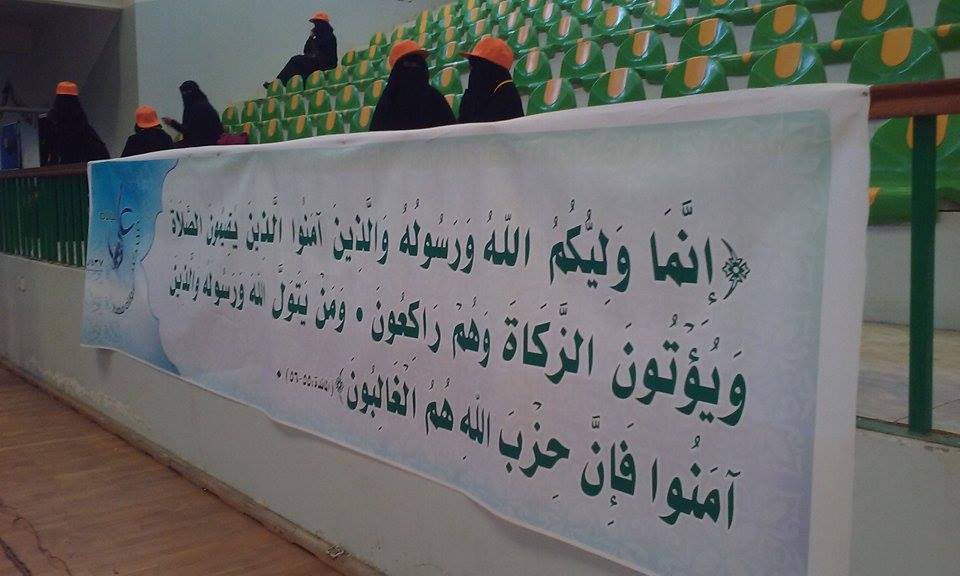 ﴿إِنَّمَا وَلِيُّكُمُ اللَّهُ وَرَسُولُهُ وَالَّذِينَ آمَنُوا الَّذِينَ يُقِيمُونَ الصَّلَاةَ
وَيُؤْتُونَ الزَّكَاةَ وَهُمْ رَاكِعُونَ • وَمَنْ يَتَوَلَّ اللَّهَ وَرَسُولَهُ وَالَّذِينَ
آمَنُوا فَإِنَّ حِزْبَ اللَّهِ هُمُ الْغَالِبُونَ﴾ (المائدة:٥٥-٥٦) •